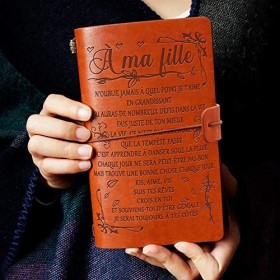 À ma fille
N'OUBLIE JAMAIS À QUEL POINT JE T'AIME
EN GRANDISSANT
TU AURAS DE NOMBREUX DÉFIS DANS LA VIE
FAIS JUSTE DE TON MIEUX
LA VIE
QUE LA TEMPÊTE PASSE
C'EST APPRENDRE À DANSER SOUS LA PLUIE
CHAQUE JOUR NE SERA PEUT-ÊTRE PAS BON
MAIS TROUVE UNE BONNE CHOSE CHAQUE JOUR
RIS, AIME, VIS
SUIS TES RÊVES
CROIS EN TOI
ET SOUVIENS-TOI D'ÊTRE GÉNIALE
JE SERAI TOUJOURS À TES CÔTÉS